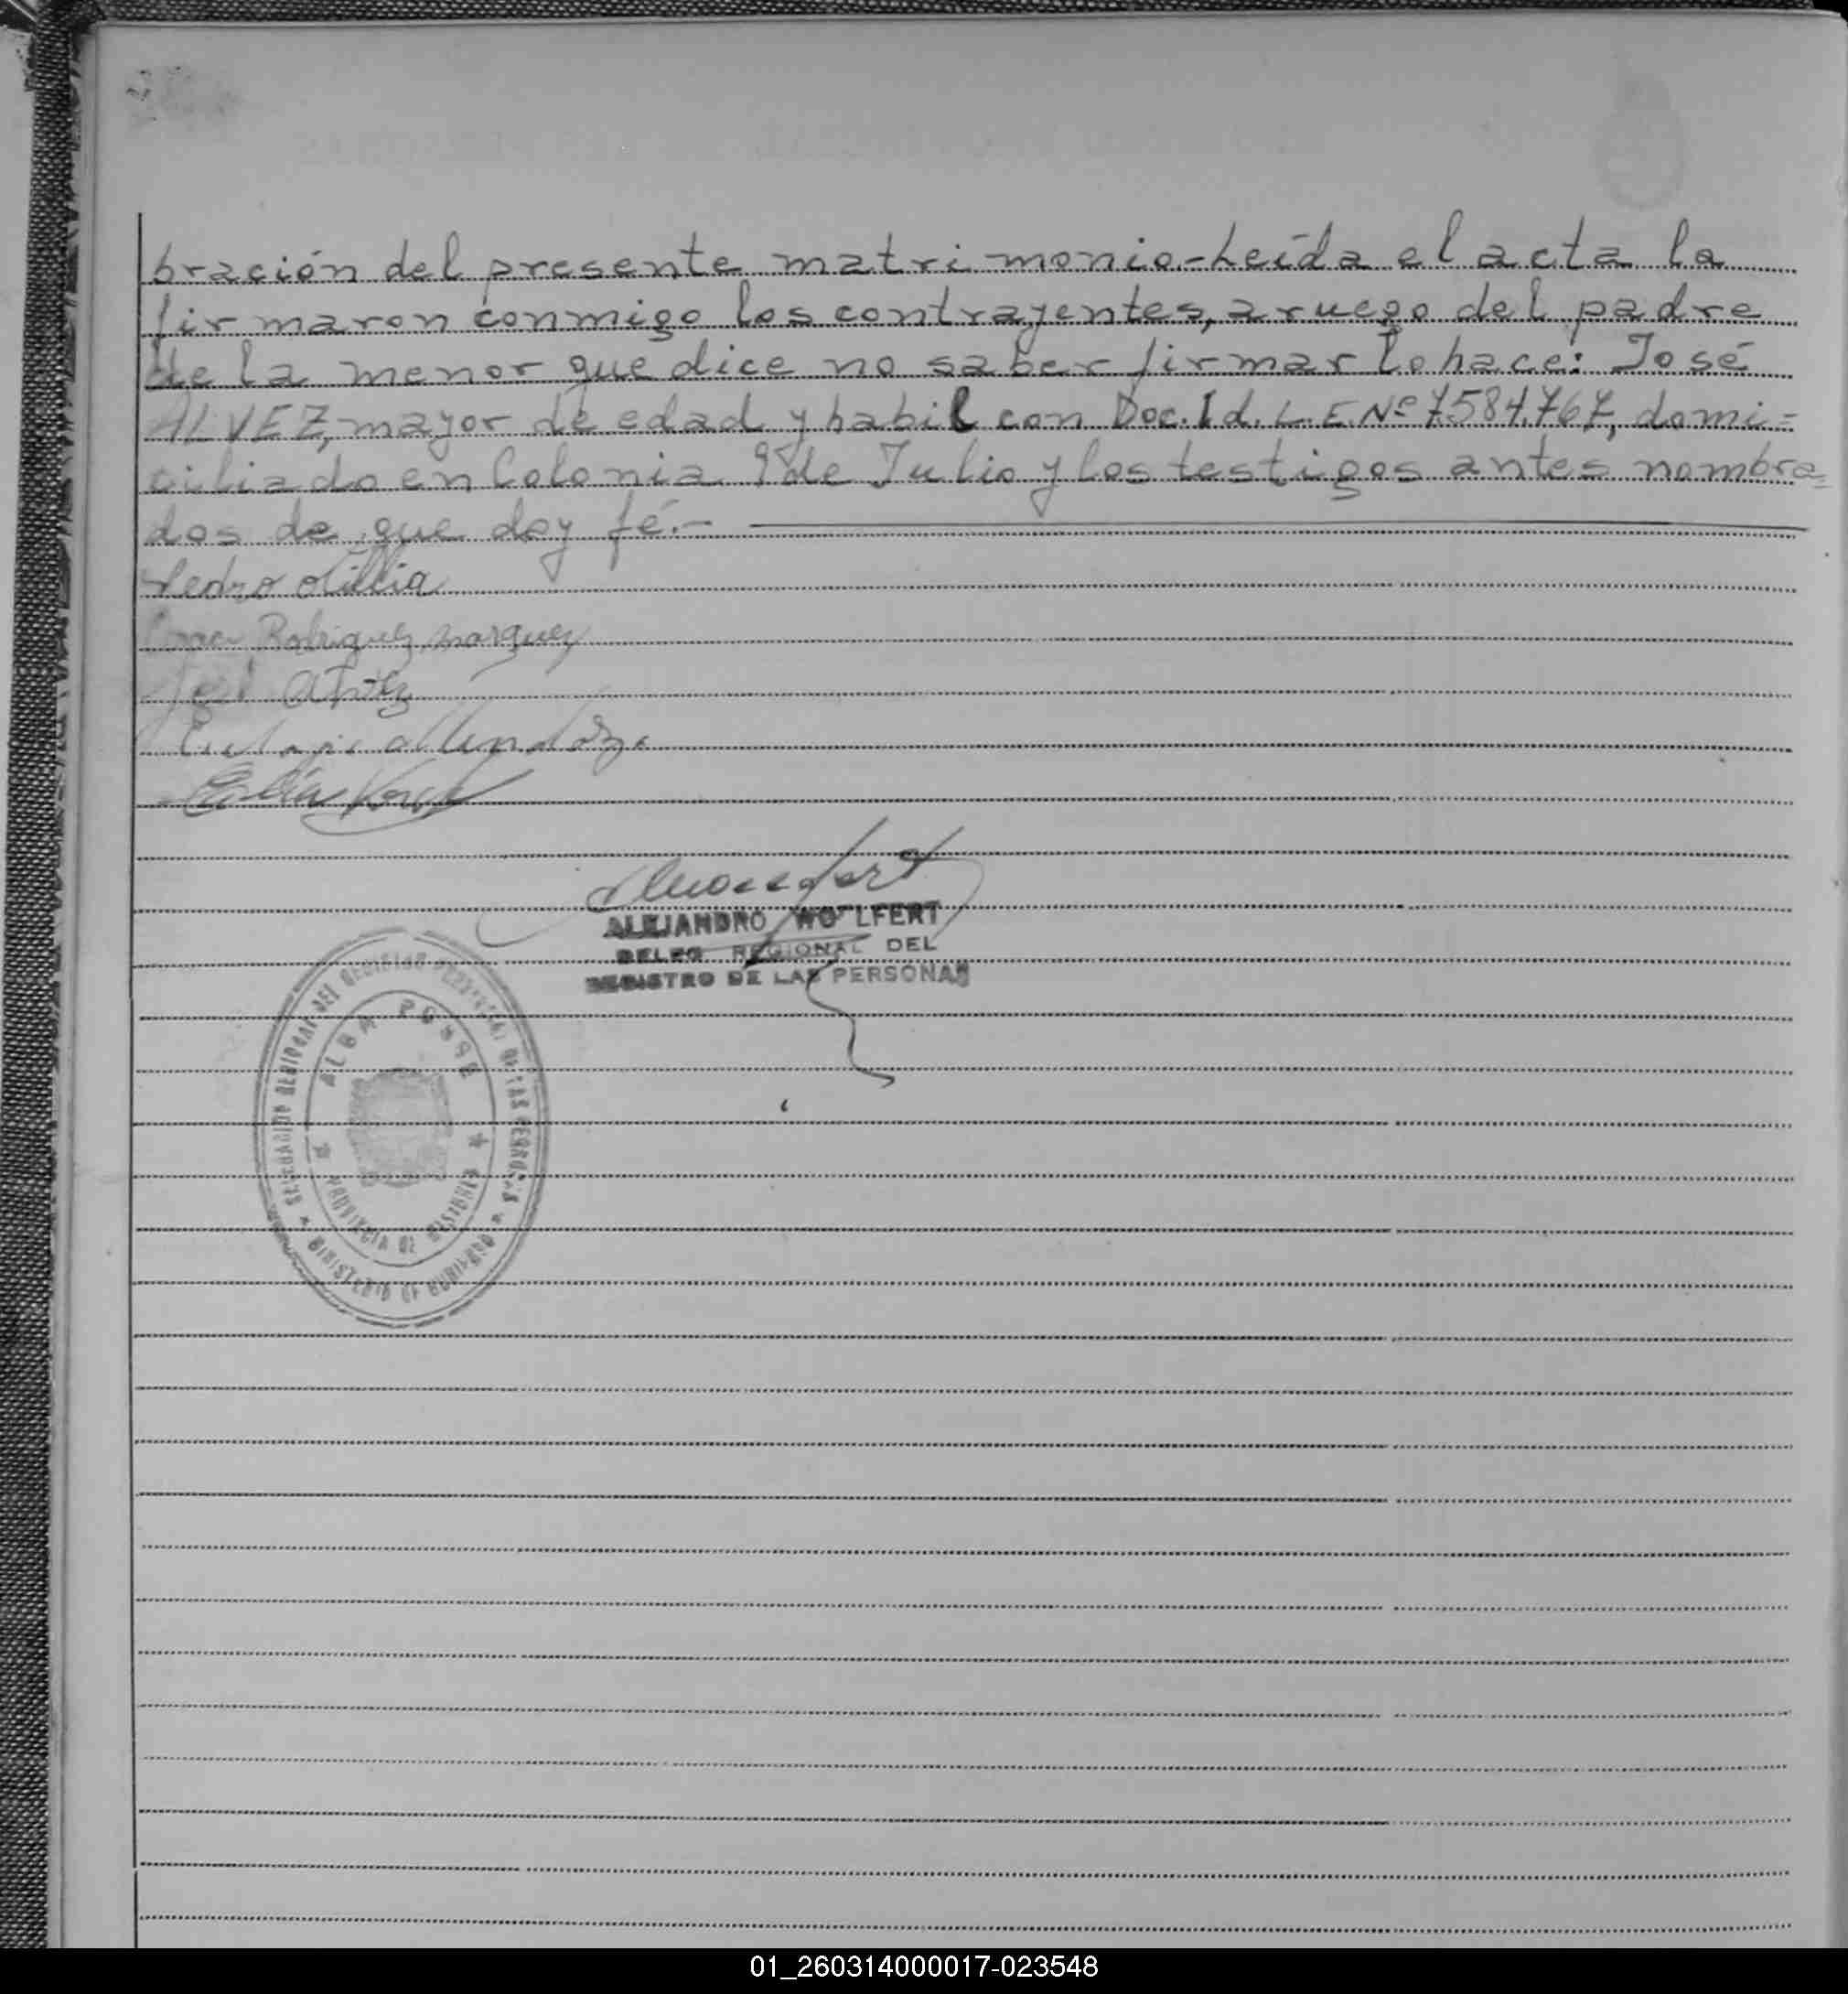 bración del presente matrimonio.-Leída el acta la
firmaron conmigo los contrayentes, a ruego del padre
de la menor que dice no saber firmar lo hace: José
ALVEZ, mayor de edad y habil con Doc. Id. L.E. Nº 7.584.767, domi=
ciliado en Colonia 9 de Julio y los testigos antes nombra=
dos de que doy fé.-
Pedro
Rodriguez Marquez
José
ALEJANDRO WOLFERT
DELEG REGIONAL DEL
REGISTRO DE LAS PERSONAS
ALBA POSSE
PROVINCIA DE MISIONES
MINISTERIO DE GOBIERNO
01_260314000017-023548